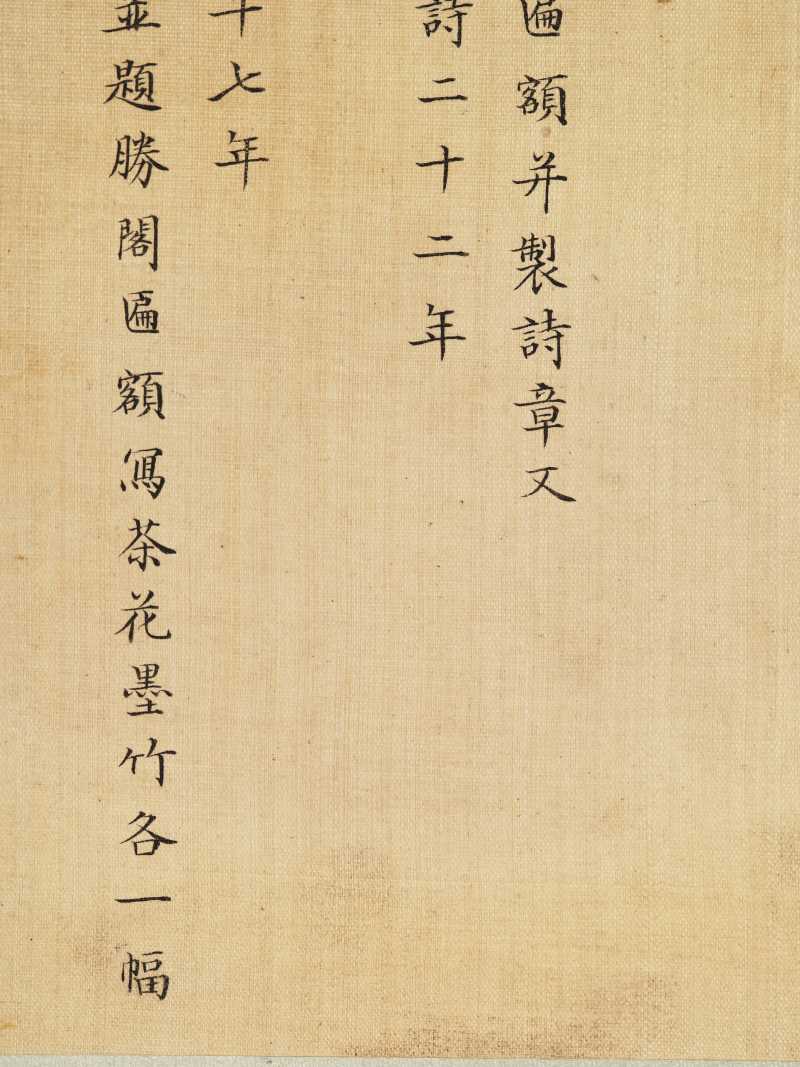 匾額并製詩章又
詩二十二年
十七年
並題勝閣匾額寫茶花墨竹各一幅